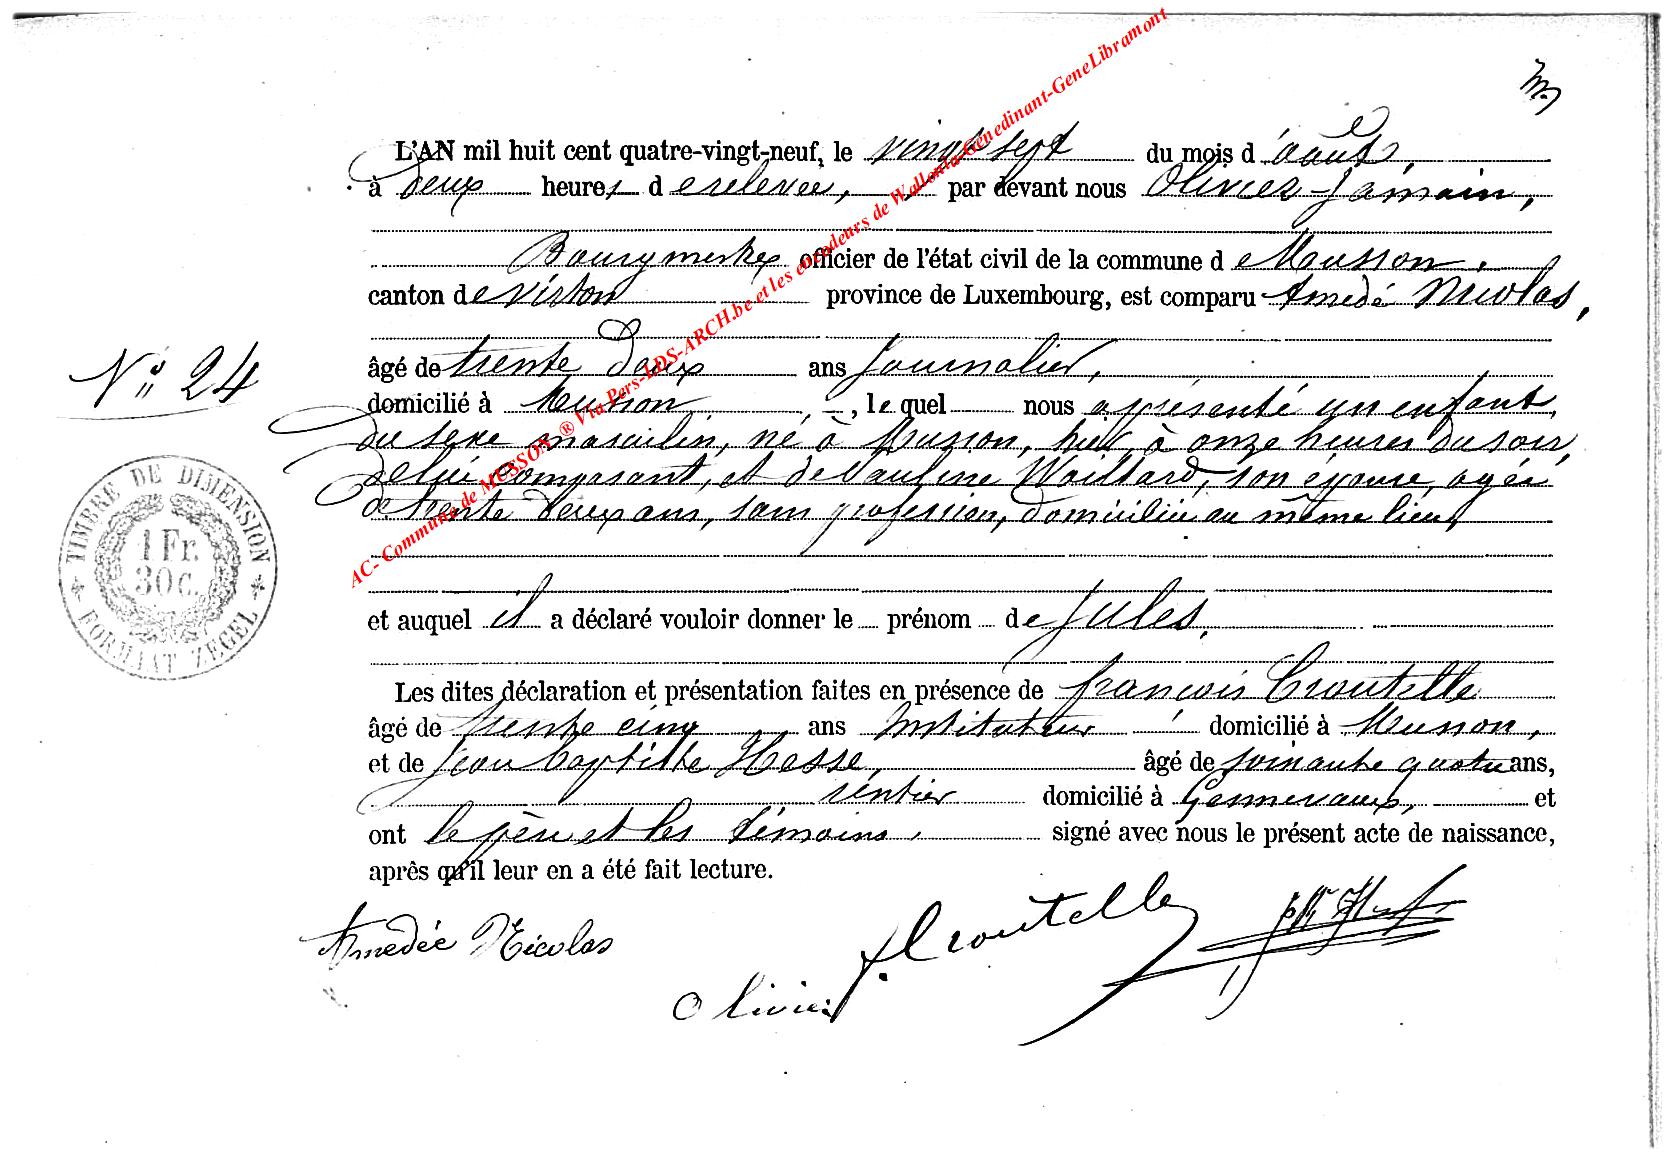 L'AN mil huit cent quatre-vingt-neuf, le vingt sept du mois d'août,
à deux heures de relevée, par devant nous Olivier Jamain,
Bourgmestre officier de l'état civil de la commune de Musson,
canton de Virton province de Luxembourg, est comparu Amedé Nicolas,
âgé de trente deux ans journalier,
N° 24
domicilié à Musson, le quel nous a présenté un enfant
du sexe masculin, né à Musson, hier, à onze heures du soir,
de lui comparant, et de Pauline Waillard, son épouse, agée
de trente deux ans, sans profession, domiciliée au même lieu,
TIMBRE DE DIMENSION
1 Fr.
30 C.
FORMAAT ZEGEL
et auquel il a déclaré vouloir donner le prénom de Jules.
Les dites déclaration et présentation faites en présence de françois Croutelle
âgé de trente cinq ans Instituteur domicilié à Musson,
et de Jean baptiste Hesse, âgé de soixante quatre ans,
rentier domicilié à Gennevaux, et
ont le père et les témoins, signé avec nous le présent acte de naissance,
après qu'il leur en a été fait lecture.
Amedée Nicolas
f. Croutelle
Olivier
AC- Commune de MUSSON ® Via Pers-LDS-ARCH.be et les encodeurs de Wallonia-Genedinant-GeneLibramont